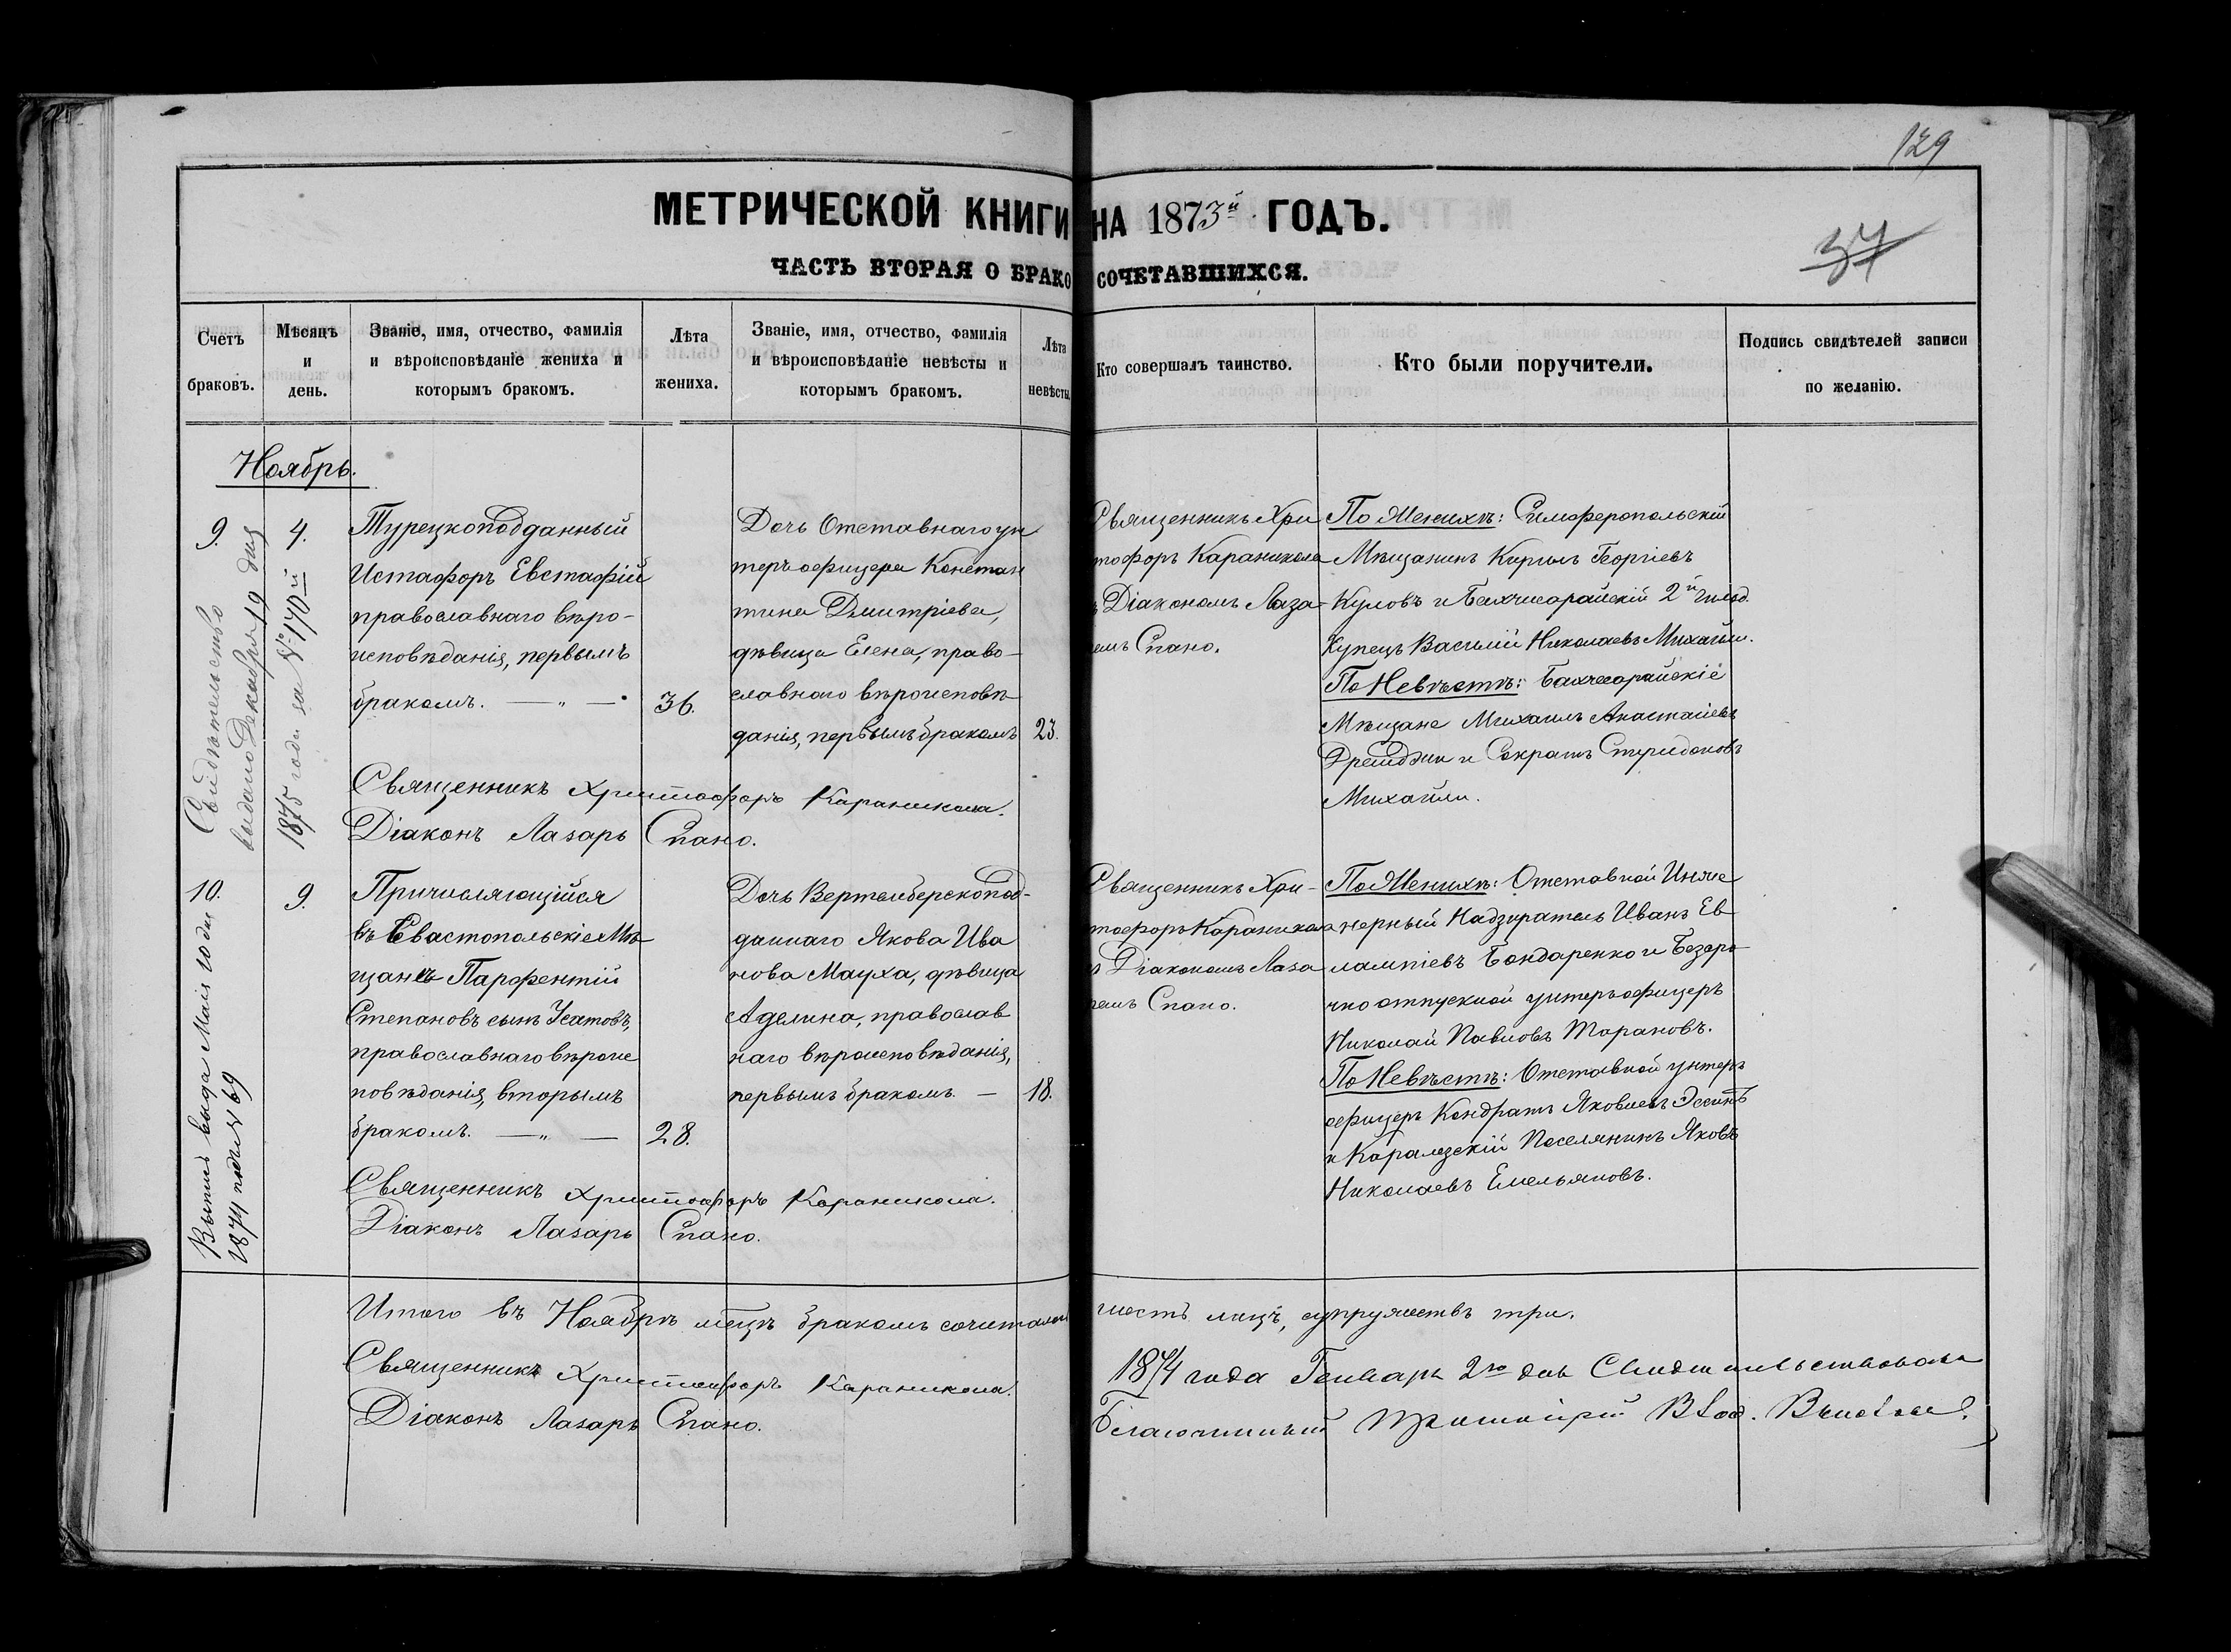 129
МЕТРИЧЕСКОЙ КНИГИ НА 1873й ГОДЪ.
37
ЧАСТЬ ВТОРАЯ О БРАКОСОЧЕТАВШИХСЯ.
Счетъ
браковъ.
Мѣсяцъ
и
день.
Званіе, имя, отчество, фамилія
и вѣроисповѣданіе жениха и
которымъ бракомъ.
Лѣта
жениха.
Званіе, имя, отчество, фамилія
и вѣроисповѣданіе невѣсты и
которымъ бракомъ.
Лѣта
невѣсты.
Кто совершалъ таинство.
Кто были поручители.
Подпись свидѣтелей записи
по желанію.
Ноябрь.
9.
Свидѣтельство
выдано Декабря 19 дня
1875 года за № 170-й
4.
Турецкоподданный
Истафоръ Евстафій
православнаго вѣро-
исповѣданія, первымъ
бракомъ. — „ —
36.
Дочь Отставнаго ун
теръ офицера Констан
тина Дмитріева,
дѣвица Елена, право-
славнаго вѣроисповѣ-
данія, первымъ бракомъ
23.
Священникъ Хри
тофоръ Караникола
ъ Діакономъ Лаза-
емъ Спано.
По Женихѣ: Симферопольскій
Мѣщанинъ Кирилъ Георгіевъ
Куловъ и Бахчисарайскій 2й гильд.
Купецъ Василій Николаевъ Михайли.
По Невѣстѣ: Бахчисарайскіе
Мѣщане Михаилъ Анастасіевъ
и Сократъ Спиридоновъ
Михайли.
Священникъ Христофоръ Караникола.
Діаконъ Лазарь Спано.
10.
Выпись выда Маія 20 дня
1874 подъ № 69
9.
Причисляющійся
въ Севастопольскіе Мѣ-
щане Парфентій
Степановъ сынъ Усатовъ,
православнаго вѣроис
повѣданія, вторымъ
бракомъ. — „ —
28.
Дочь Вертембергскопод-
даннаго Якова Ива
нова Мауха, дѣвица
Аделина, православ
наго вѣроисповѣданія,
первымъ бракомъ. —
18.
Священникъ Хри-
тофоръ Караникола
ъ Діакономъ Лаза
емъ Спано.
По Женихѣ: Отставной Инже
нерный Надзиратель Иванъ Ев
лампіевъ Бондаренко и Безсро
чно отпускной унтеръ офицеръ
Николай Павловъ Тарановъ.
По Невѣстѣ: Отставной унтеръ
офицеръ Кондратъ Яковлевъ
и Каралезскій Поселянинъ Яковъ
Николаевъ Емельяновъ.
Священникъ Христофоръ Караникола.
Діаконъ Лазарь Спано.
Итого въ Ноябрѣ мѣцѣ бракомъ сочетались шесть лицъ, супружествъ три.
Священникъ Христофоръ Караникола.
Діаконъ Лазарь Спано.
1874 года Генваря 2го дня Свидѣтельствовалъ
Благочинный Протоіерей Влад.